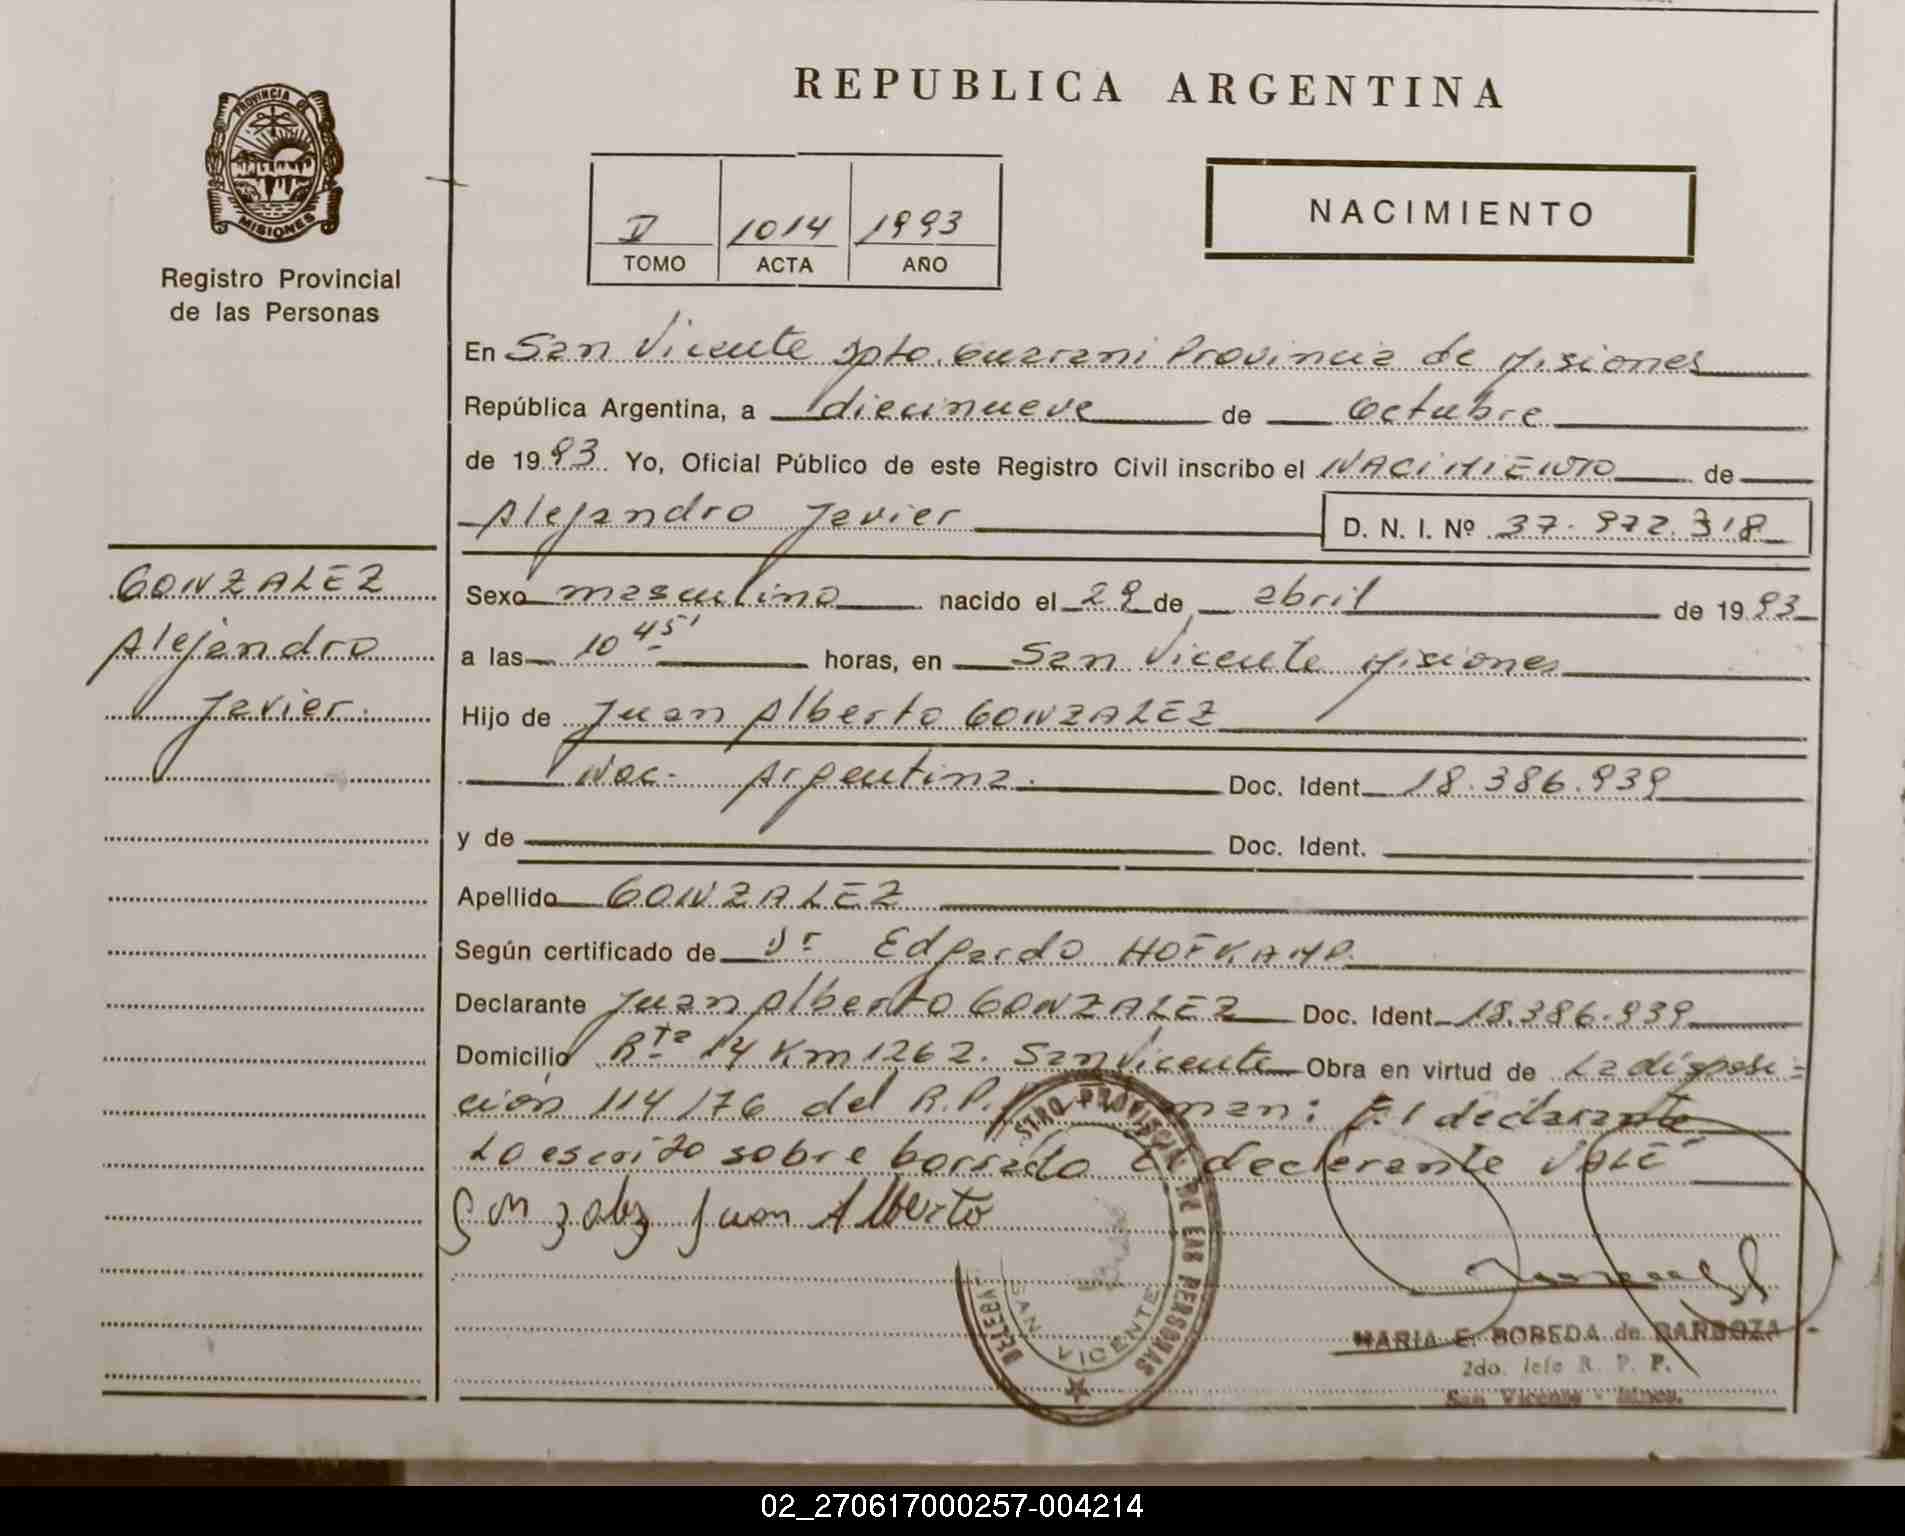 REPUBLICA ARGENTINA
PROVINCIA DE
MISIONES
Registro Provincial
de las Personas
V 1014 1993
TOMO ACTA AÑO
NACIMIENTO
En San Vicente Dpto. Guarani Provincia de Misiones
República Argentina, a diecinueve de Octubre
de 1993. Yo, Oficial Público de este Registro Civil inscribo el NACIMIENTO de
Alejandro Javier D. N. I. Nº 37.972.318
GONZALEZ
Alejandro
Javier.
Sexo masculino nacido el 29 de abril de 1993
a las 10 45' horas, en San Vicente Misiones
Hijo de Juan Alberto GONZALEZ
Nac. Argentina. Doc. Ident. 18.386.939
y de Doc. Ident.
Apellido GONZALEZ
Según certificado de Dr Edgardo HOFKAMP.
Declarante Juan Alberto GONZALEZ Doc. Ident. 18.386.939
Domicilio Rta 14 Km 1262. San Vicente Obra en virtud de La disposi=
ción 114/76 del R.P. man: El declarante
Lo escrito sobre borrado El declarante VALE
Gonzalez Juan Alberto
STRO PROVINCIAL DE LAS PERSONAS
SAN VICENTE
MARIA E. BOBEDA de BARBOZA
2do. Jefe R. P. P.
San Vicente - Mnes.
02_270617000257-004214